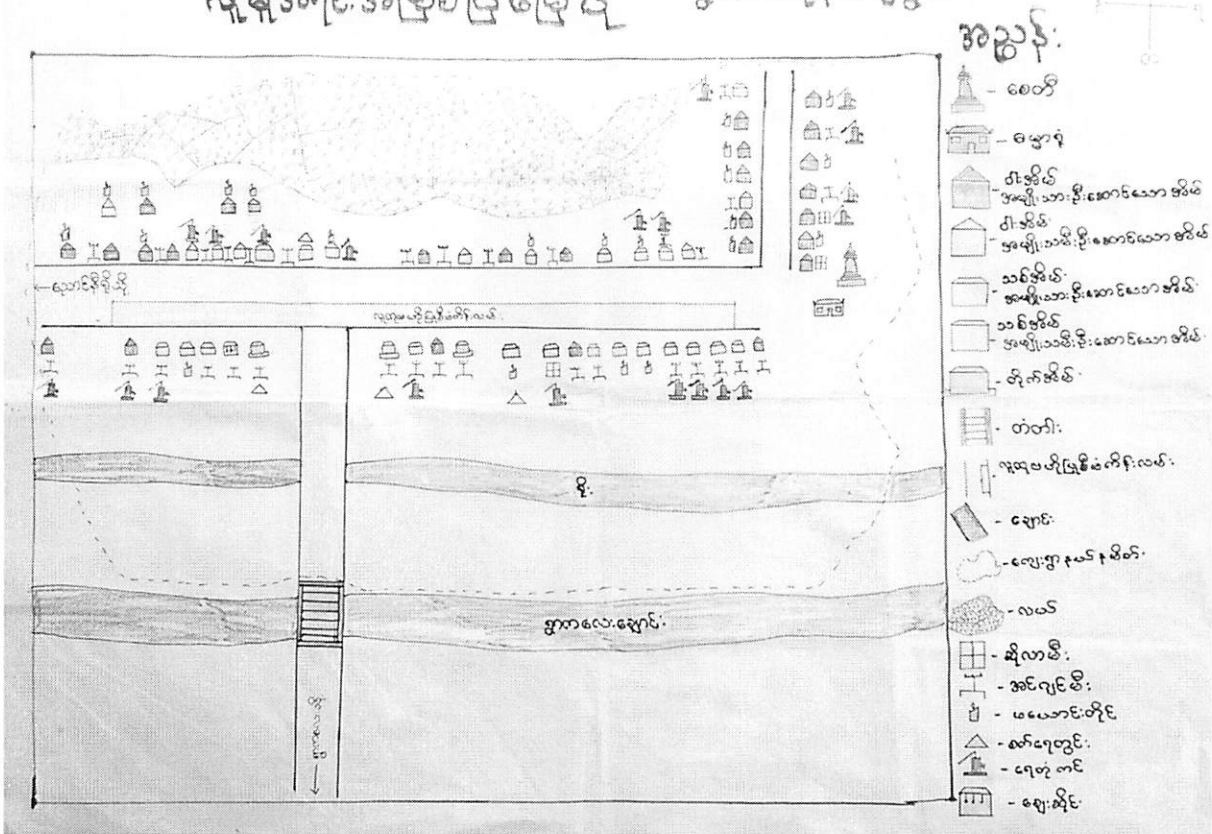 အညွှန်း
- စေတီ
- ဓမ္မာရုံ
ဝါးအိမ်
အမျိုးသားဦးဆောင်သောအိမ်
ဝါးအိမ်
အမျိုးသမီးဦးဆောင်သောအိမ်
သစ်အိမ်
အမျိုးသားဦးဆောင်သောအိမ်
သစ်အိမ်
အမျိုးသမီးဦးဆောင်သောအိမ်
- တိုက်အိမ်
- တံတား
လူထုဗဟိုပြုစီမံကိန်းလမ်း
- ချောင်း
- ကျေးရွာနယ်နမိတ်
- လယ်
- ဆိုလာမီး
- အင်ဂျင်မီး
- ဖယောင်းတိုင်
- စက်ရေတွင်း
- ရေတုံကင်
- ဈေးဆိုင်
လူထုဗဟိုပြုစီမံကိန်းလမ်း
ရိုး
ရွာကလေးချောင်း
ရွာကလေးသို့